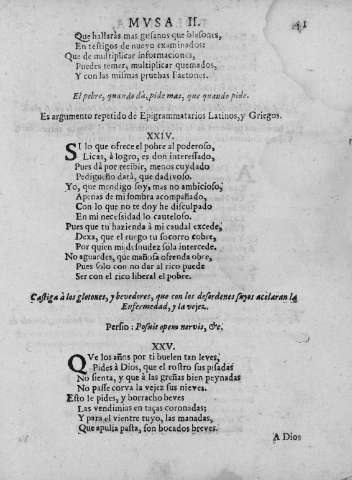 MVSA II. 41
Que hallaràs mas gusanos que blasones,
En testigos de nuevo examinados:
Que de multiplicar informaciones,
Puedes temer, multiplicar quemados,
Y con las mismas pruebas Faetones.
El pobre, quando dà, pide mas, que quando pide.
Es argumento repetido de Epigrammatarios Latinos, y Griegos.
XXIV.
SI lo que ofrece el pobre al poderoso,
Licas, à logro, es don interessado,
Pues dà por recibir, menos cuydado
Pedigueño darà, que dadivoso.
Yo, que mendigo soy, mas no ambicioso,
Apenas de mi sombra acompañado,
Con lo que no te doy he disculpado
En mi necessidad lo cauteloso.
Pues que tu hazienda à mi caudal excede,
Dexa, que el ruego tu socorro cobre,
Por quien mi desnudez sola intercede.
No aguardes, que mañosa ofrenda obre,
Pues solo con no dar al rico puede
Ser con el rico liberal el pobre.
Castiga à los glotones, y bevedores, que con los desordenes suyos aceleran la
Enfermedad, y la vejez.
Persio: Poscis opem nervis, &c.
XXV.
QVe los años por ti buelen tan leves,
Pides à Dios, que el rostro sus pisadas
No sienta, y que à las greñas bien peynadas
No passe corva la vejez sus nieves.
Esto le pides, y borracho beves
Las vendimias en taças coronadas;
Y para el vientre tuyo, las manadas,
Que apulia pasta, son bocados breves.
A Dios